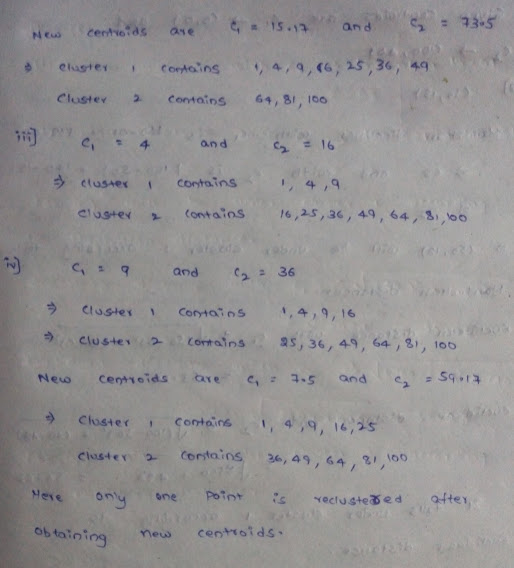 New centroids are C₁ = 15.17 and C₂ = 73.5
⇒ cluster 1 contains 1, 4, 9, 16, 25, 36, 49
Cluster 2 contains 64, 81, 100
iii] C₁ = 4 and C₂ = 16
⇒ cluster 1 contains 1, 4, 9
cluster 2 contains 16, 25, 36, 49, 64, 81, 100
iv] C₁ = 9 and C₂ = 36
⇒ cluster 1 contains 1, 4, 9, 16
⇒ cluster 2 contains 25, 36, 49, 64, 81, 100
New centroids are C₁ = 7.5 and C₂ = 59.17
⇒ cluster 1 contains 1, 4, 9, 16, 25
cluster 2 contains 36, 49, 64, 81, 100
Here only one point is reclustered after,
obtaining new centroids.